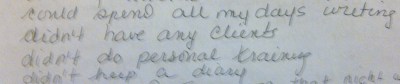 could spend all my days writing
didn't have any clients
didn't do personal training
didn't keep a diary
that night